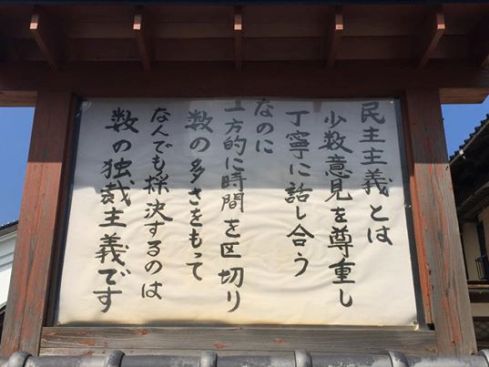 民主主義とは
少数意見を尊重し
丁寧に話し合う
なのに
一方的に時間を区切り
数の多さをもって
なんでも採決するのは
数の独裁主義です